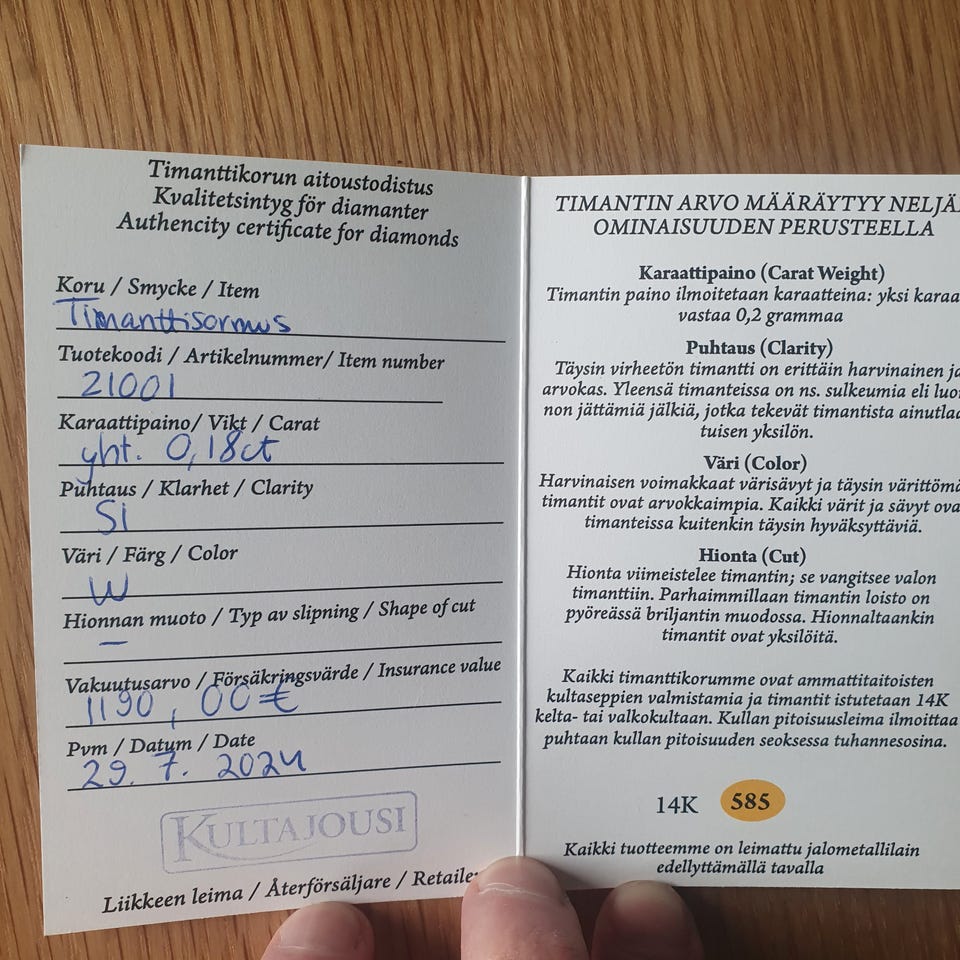 Timanttikorun aitoustodistus
Kvalitetsintyg för diamanter
Authencity certificate for diamonds
Koru / Smycke / Item
Timanttisormus
Tuotekoodi / Artikelnummer/ Item number
21001
Karaattipaino/ Vikt / Carat
yht. 0,18ct
Puhtaus / Klarhet / Clarity
Si
Väri / Färg / Color
W
Hionnan muoto / Typ av slipning / Shape of cut
—
Vakuutusarvo / Försäkringsvärde / Insurance value
1190,00€
Pvm / Datum / Date
29. 7. 2024
KULTAJOUSI
Liikkeen leima / Återförsäljare / Retailer
TIMANTIN ARVO MÄÄRÄYTYY NELJÄ
OMINAISUUDEN PERUSTEELLA
Karaattipaino (Carat Weight)
Timantin paino ilmoitetaan karaatteina: yksi karaa
vastaa 0,2 grammaa
Puhtaus (Clarity)
Täysin virheetön timantti on erittäin harvinainen ja
arvokas. Yleensä timanteissa on ns. sulkeumia eli luo
non jättämiä jälkiä, jotka tekevät timantista ainutlaa
tuisen yksilön.
Väri (Color)
Harvinaisen voimakkaat värisävyt ja täysin värittömä
timantit ovat arvokkaimpia. Kaikki värit ja sävyt ova
timanteissa kuitenkin täysin hyväksyttäviä.
Hionta (Cut)
Hionta viimeistelee timantin; se vangitsee valon
timanttiin. Parhaimmillaan timantin loisto on
pyöreässä briljantin muodossa. Hionnaltaankin
timantit ovat yksilöitä.
Kaikki timanttikorumme ovat ammattitaitoisten
kultaseppien valmistamia ja timantit istutetaan 14K
kelta- tai valkokultaan. Kullan pitoisuusleima ilmoittaa
puhtaan kullan pitoisuuden seoksessa tuhannesosina.
14K 585
Kaikki tuotteemme on leimattu jalometallilain
edellyttämällä tavalla